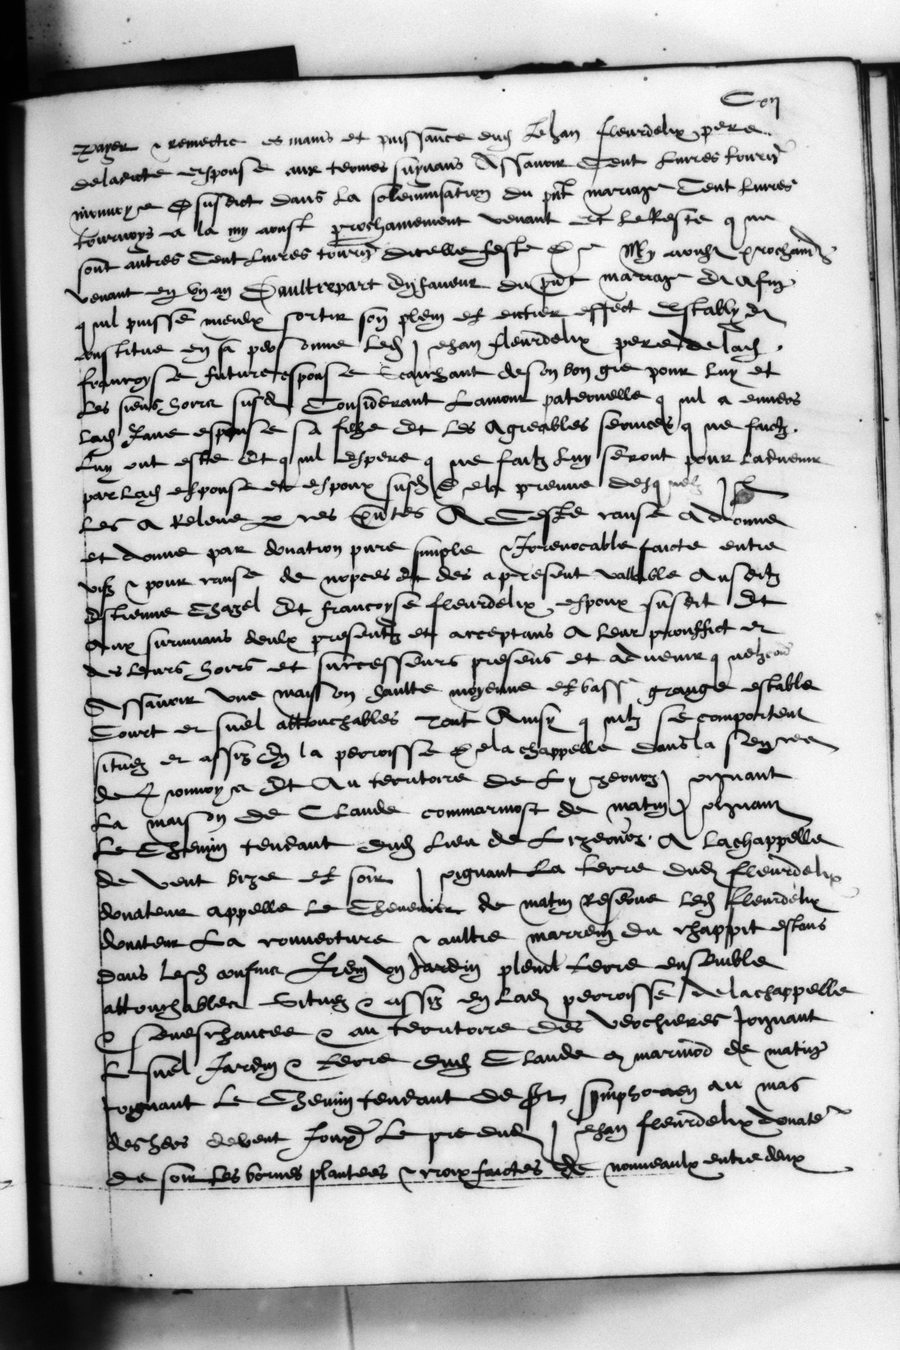 Cvij
payer & remectre es mains et puissance dud Jehan fleurdelix pere
de ladicte espouse aux termes suyvans Assavoir Cent livres tourn
susdict dans la solempnisation du pnt mariage Cent livres
tournoys a la my aoust prochainement venant Et le Reste que
sont aultres Cent livres tourn dicelle feste de my aoust prochain
venant en ung an Daultrepart en faveur du pnt mariage Et affin
quil puisse mieulx sortir son plein et entier effect Estably Et
constitue en sa personne Led Jehan fleurdelix pere de lad
francoyse future espouse Scaichant de son bon gre pour luy et
les siens hoirs susd Considerant Lamour paternelle quil a envers
Lad espouse sa filhe Et les Agreables services que faictz
Luy ont este Et quil espere que faitz luy seront pour ladvenir
par Lad espouse et espoux susd de la preuve desquelz Il
Les A Releve par ces pntes A Ceste cause a donne
et donne par donation pure simple & Irrevocable faicte entre
vifz & pour cause de nopces Et des apresent vallable Ausditz
Estienne Chazel Et francoyse fleurdelix espoux susdit Et
Aux survivans deulx presentz et acceptans A leur prouffict et
des leurs hoirs et successeurs presens et advenir
Assavoir Une maison haulte moyenne et basse grange estable
Court et suel attouchables Tout Ainsy quilz se comportent
situez et assis En la perroisse de la chappelle dans la
de Et Au territoire de joignant
La maison de Claude commarmost de matin joignant
Le Chemin tendant dud Lieu de A la chappelle
de vent bize et soir joignant La terre dud fleurdelix
donateur appelle Le de matin Reserve led fleurdelix
donateur La couverture & aultre marrein du chappit estans
dans lesd confins Item Ung Jardin terre ensemble
attouchables Situez & assis en Lad perroisse de la chappelle
& & au territoire des verchieres Joignant
Le suel Jardin & terre dud Claude de matin
joignant Le Chemin tendant de St symphorien au mas
de vent Le pre dud Jehan fleurdelix donate
de soir Les bornes plantees & croix faictes de nouveaulx entre deux